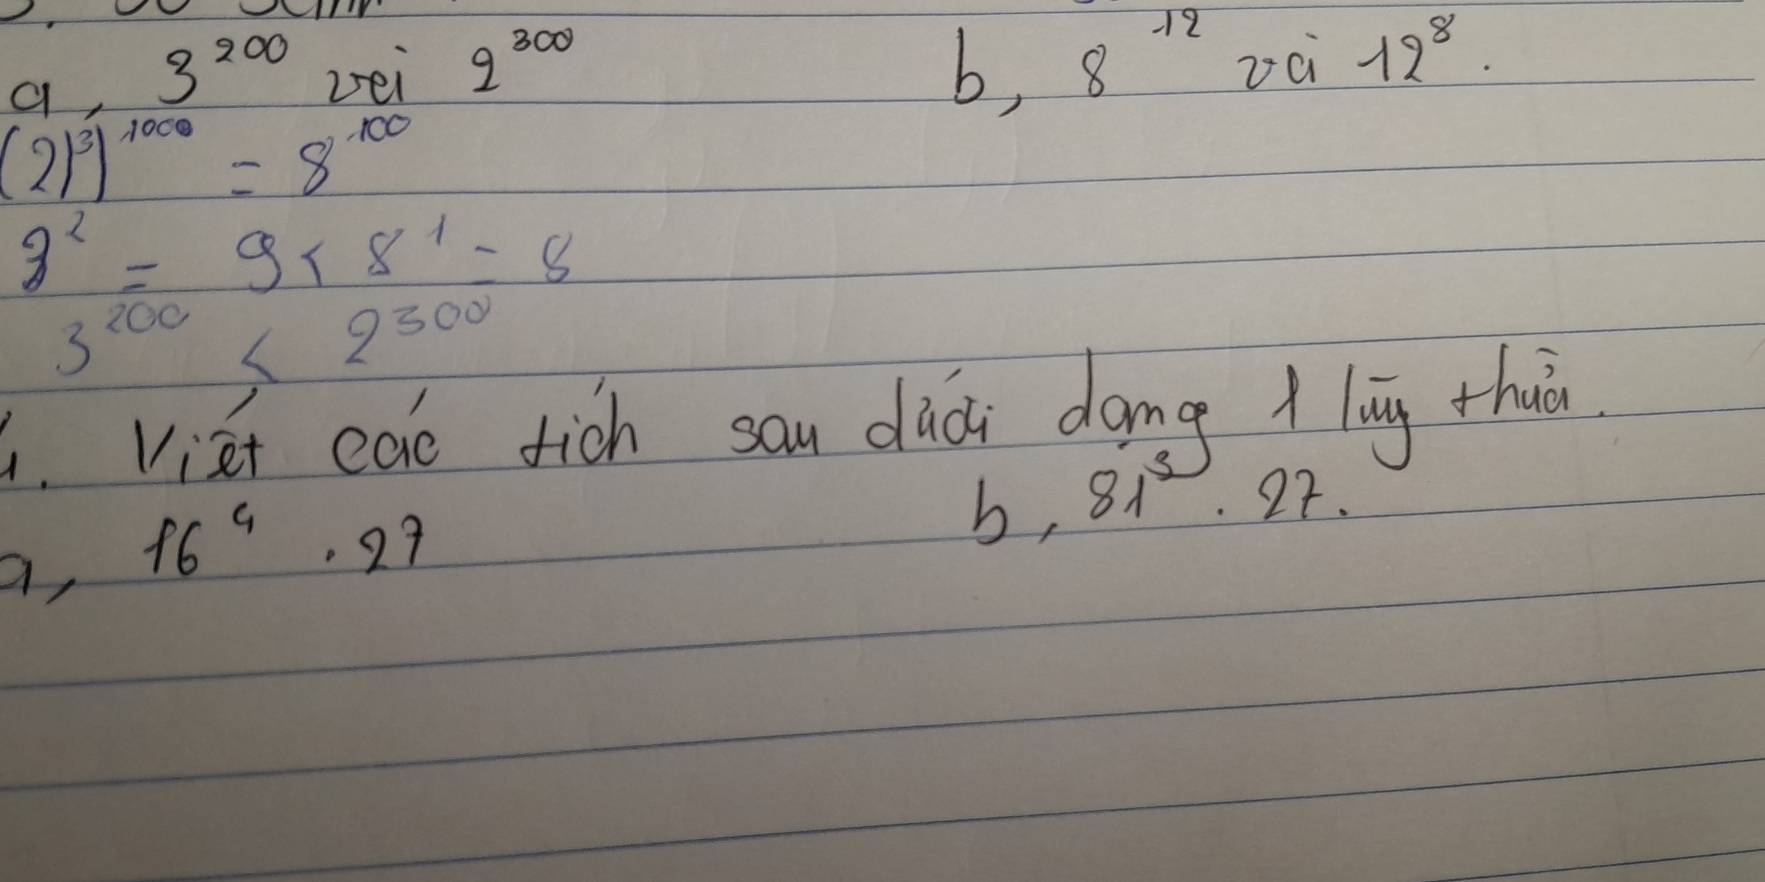 a, 3^200 và 2^300 b, 8^12 và 12^8.
(2)^3)^1000 = 8^100
3^2 = 9 < 8^1 = 8
3^200 < 2^300
4. Viết các tích sau dưới dạng 1 lũy thừa.
a, 16^4 . 27 b, 81^3 . 27.